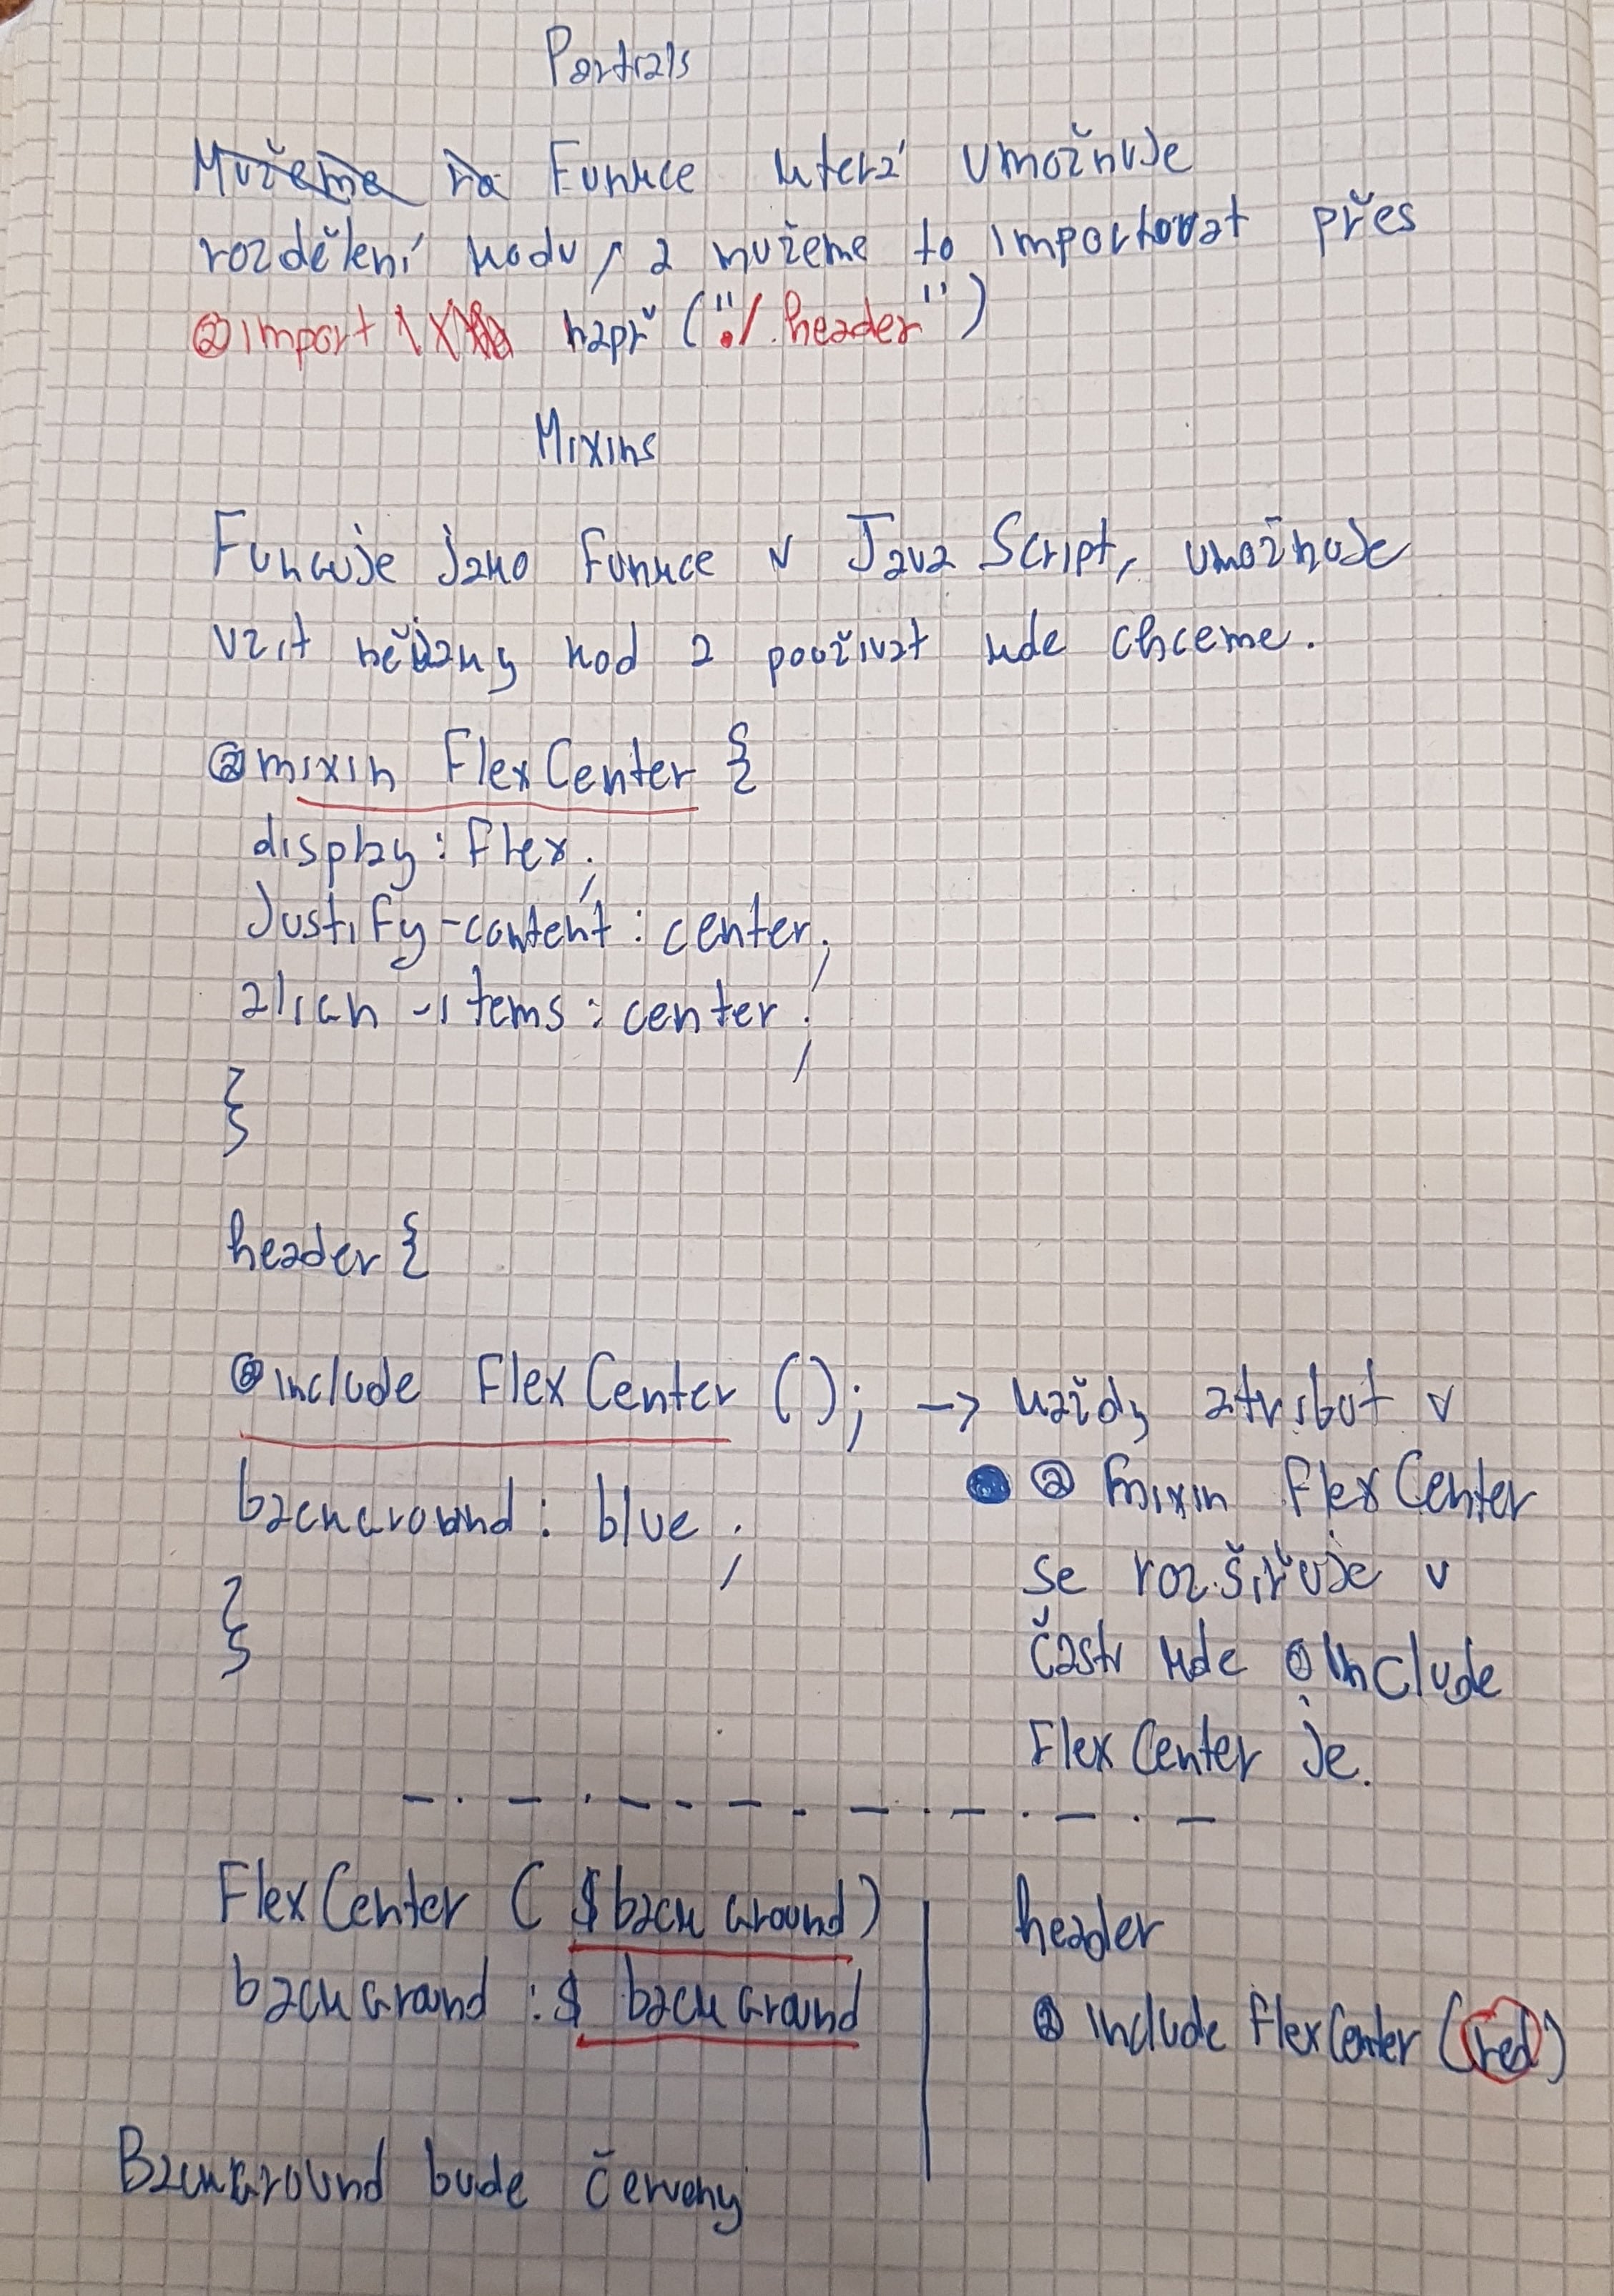 Partials
Mužeme Funkce která umožnuje
rozdělení kodu, a mužeme to importovat přes
@import např ("./header")
Mixins
Funguje jako funkce v Java Script, umožnuje
vzit nějaky kod a použivat kde chceme.
@mixin FlexCenter {
display: flex;
Justify-content: center;
align-items: center;
}
header {
@include FlexCenter (); -> každy atribut v
background: blue; @mixin FlexCenter
} se rozšiřuje v
časti kde @include
FlexCenter je.
FlexCenter ($background) header
background: $background @include FlexCenter (red)
Background bude červeny